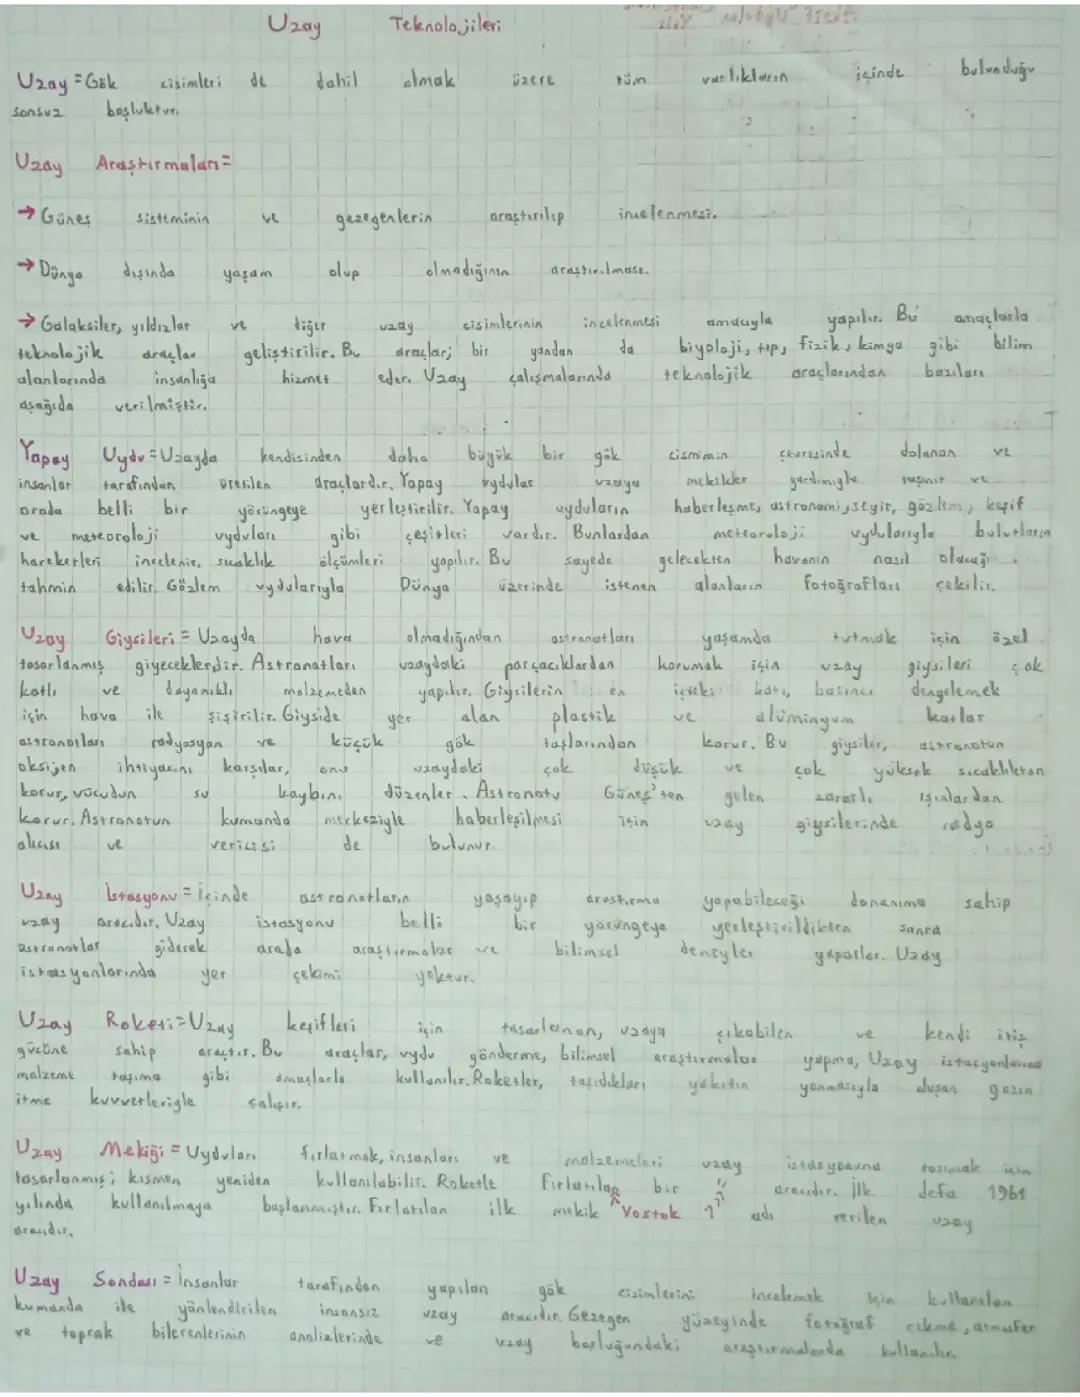 Uzay Teknolojileri
Uzay = Gök cisimleri de dahil olmak üzere tüm varlıkların içinde bulunduğu
sonsuz boşluktur.
Uzay Araştırmaları =
→ Güneş sisteminin ve gezegenlerin araştırılıp incelenmesi.
→ Dünya dışında yaşam olup olmadığının araştırılması.
→ Galaksiler, yıldızlar ve diğer uzay cisimlerinin incelenmesi amacıyla yapılır. Bu amaçlarla
teknolojik araçlar geliştirilir. Bu araçlar; bir yandan da biyoloji, tıp, fizik, kimya gibi bilim
alanlarında insanlığa hizmet eder. Uzay çalışmalarında teknolojik araçlarından bazıları
aşağıda verilmiştir.
Yapay Uydu = Uzayda kendisinden daha büyük bir gök cisminin çevresinde dolanan ve
insanlar tarafından üretilen araçlardır. Yapay uydular uzaya mekikler yardımıyla taşınır ve
orada belli bir yörüngeye yerleştirilir. Yapay uyduların haberleşme, astronomi, seyir, gözlem, keşif
ve meteoroloji uyduları gibi çeşitleri vardır. Bunlardan meteoroloji uydularıyla bulutların
hareketleri incelenir, sıcaklık ölçümleri yapılır. Bu sayede gelecekten havanın nasıl olacağı
tahmin edilir. Gözlem uydularıyla Dünya üzerinde istenen alanların fotoğrafları çekilir.
Uzay Giysileri = Uzayda hava olmadığından astronotları yaşamda tutmak için özel
tasarlanmış giyeceklerdir. Astronotları uzaydaki parçacıklardan korumak için uzay giysileri çok
katlı ve dayanıklı malzemeden yapılır. Giysilerin en içteki katı, basıncı dengelemek
için hava ile şişirilir. Giyside yer alan plastik ve alüminyum katlar
astronotları radyasyon ve küçük gök taşlarından korur. Bu giysiler, astronotun
oksijen ihtiyacını karşılar, onu uzaydaki çok düşük ve çok yüksek sıcaklıktan
korur, vücudun su kaybını düzenler. Astronotu Güneş'ten gelen zararlı ışınlardan
korur. Astronotun kumanda merkeziyle haberleşilmesi için uzay giysilerinde radyo
alıcısı ve vericisi de bulunur.
Uzay İstasyonu = İçinde astronotların yaşayıp araştırma yapabileceği donanıma sahip
uzay aracıdır. Uzay istasyonu belli bir yörüngeye yerleştirildikten sonra
astronotlar giderek arada araştırmalar ve bilimsel deneyler yaparlar. Uzay
istasyonlarında yer çekimi yoktur.
Uzay Roketi = Uzay keşifleri için tasarlanan, uzaya çıkabilen ve kendi itiş
gücüne sahip araçtır. Bu araçlar, uydu gönderme, bilimsel araştırmalar yapma, Uzay istasyonlarına
malzeme taşıma gibi amaçlarla kullanılır. Roketler, taşıdıkları yakıtın yanmasıyla oluşan gazın
itme kuvvetleriyle çalışır.
Uzay Mekiği = Uyduları fırlatmak, insanları ve malzemeleri uzay istasyonuna taşımak için
tasarlanmış; kısmen yeniden kullanılabilir. Roketle fırlatılan bir aracıdır. İlk defa 1961
yılında kullanılmaya başlanmıştır. Fırlatılan ilk mekik "Vostok 1" adı verilen uzay
aracıdır.
Uzay Sondası = İnsanlar tarafından yapılan gök cisimlerini incelemek için kullanılan
kumanda ile yönlendirilen insansız uzay aracıdır. Gezegen yüzeyinde fotoğraf çekme, atmosfer
ve toprak bileşenlerinin analizlerinde ve uzay boşluğundaki araştırmalarda kullanılır.